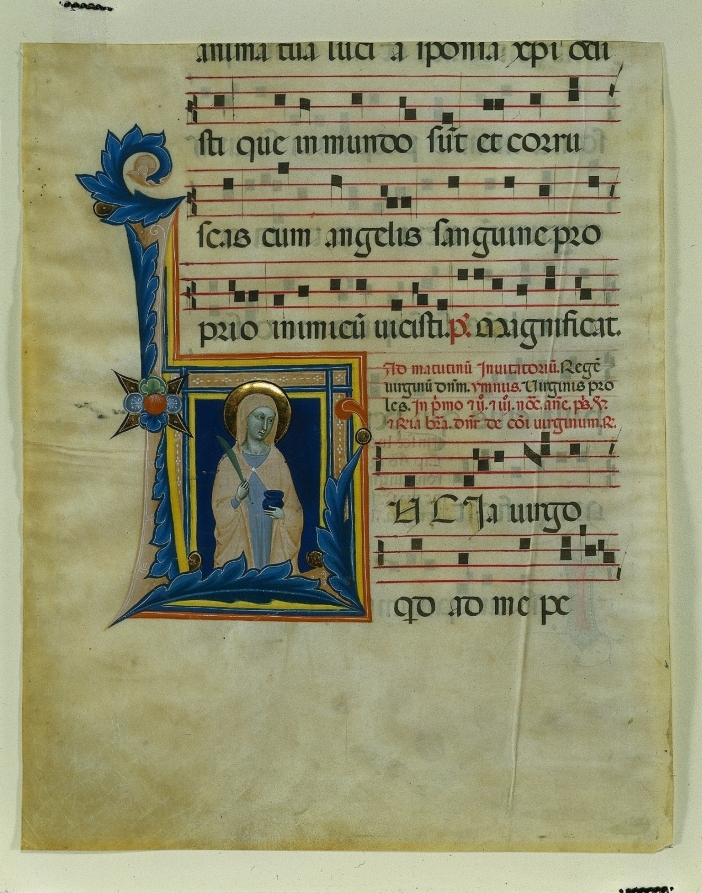 anima tua luci a sponsa xpi
sti que in mundo sūt et corru
scas cum angelis sanguine pro
prio inimicū uicisti. p̄. Magnificat.
Ad matutinū Inuitatoriū. Regē
uirginū dnīm. ymnus. Uirginis pro
les. In p̄mo
de cōi uirginum. R.
ia uirgo
qd ad me pe